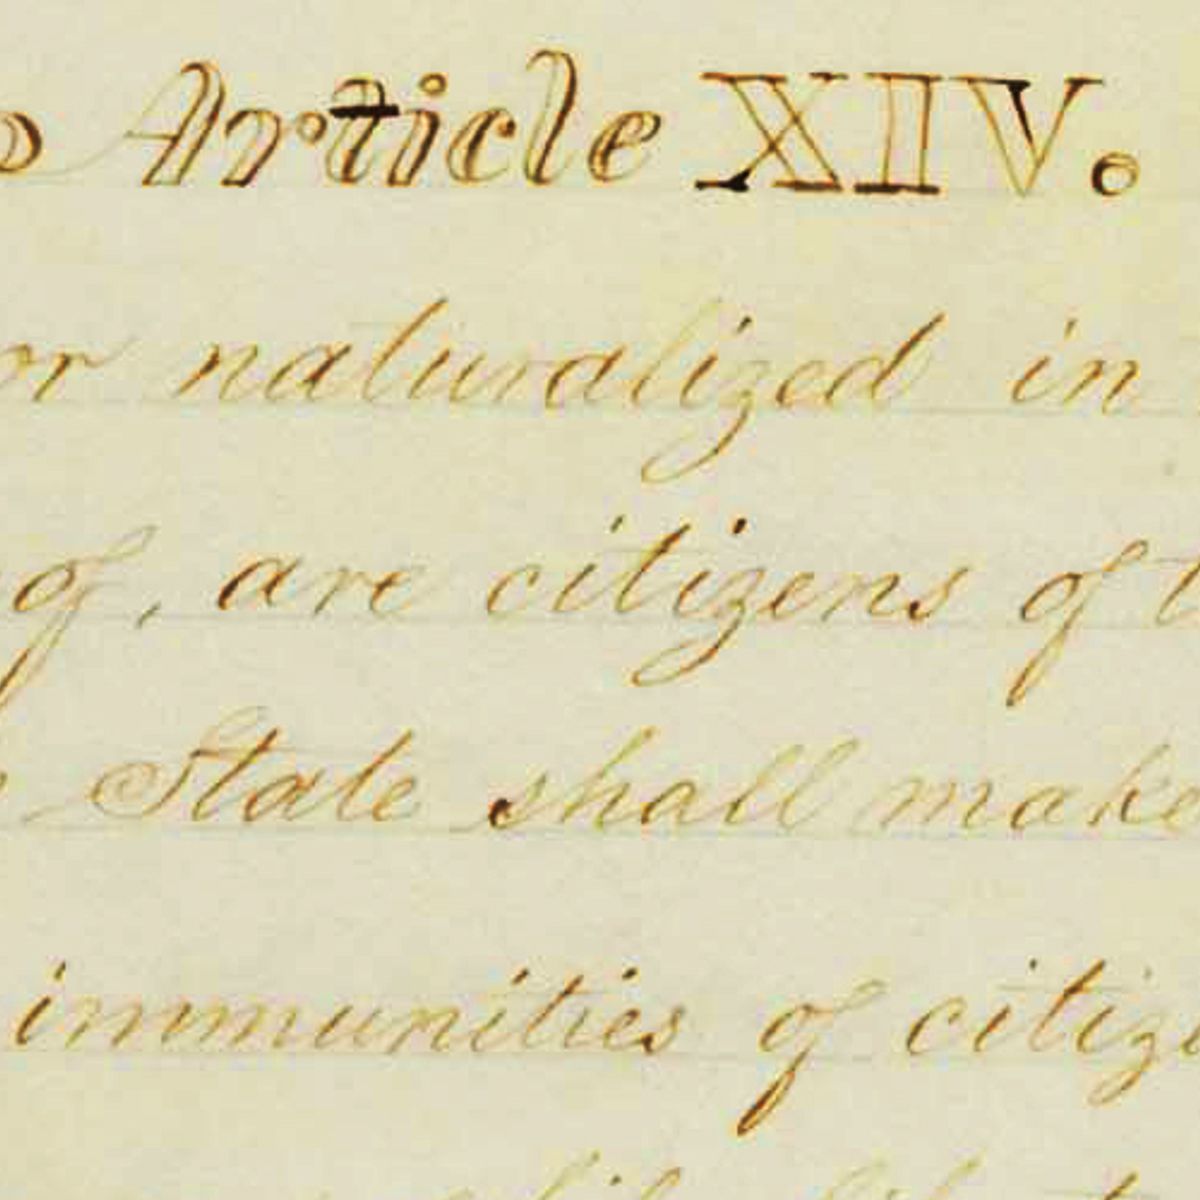 Article XIV.
or naturalized in
of, are citizens of
State shall make
immunities of